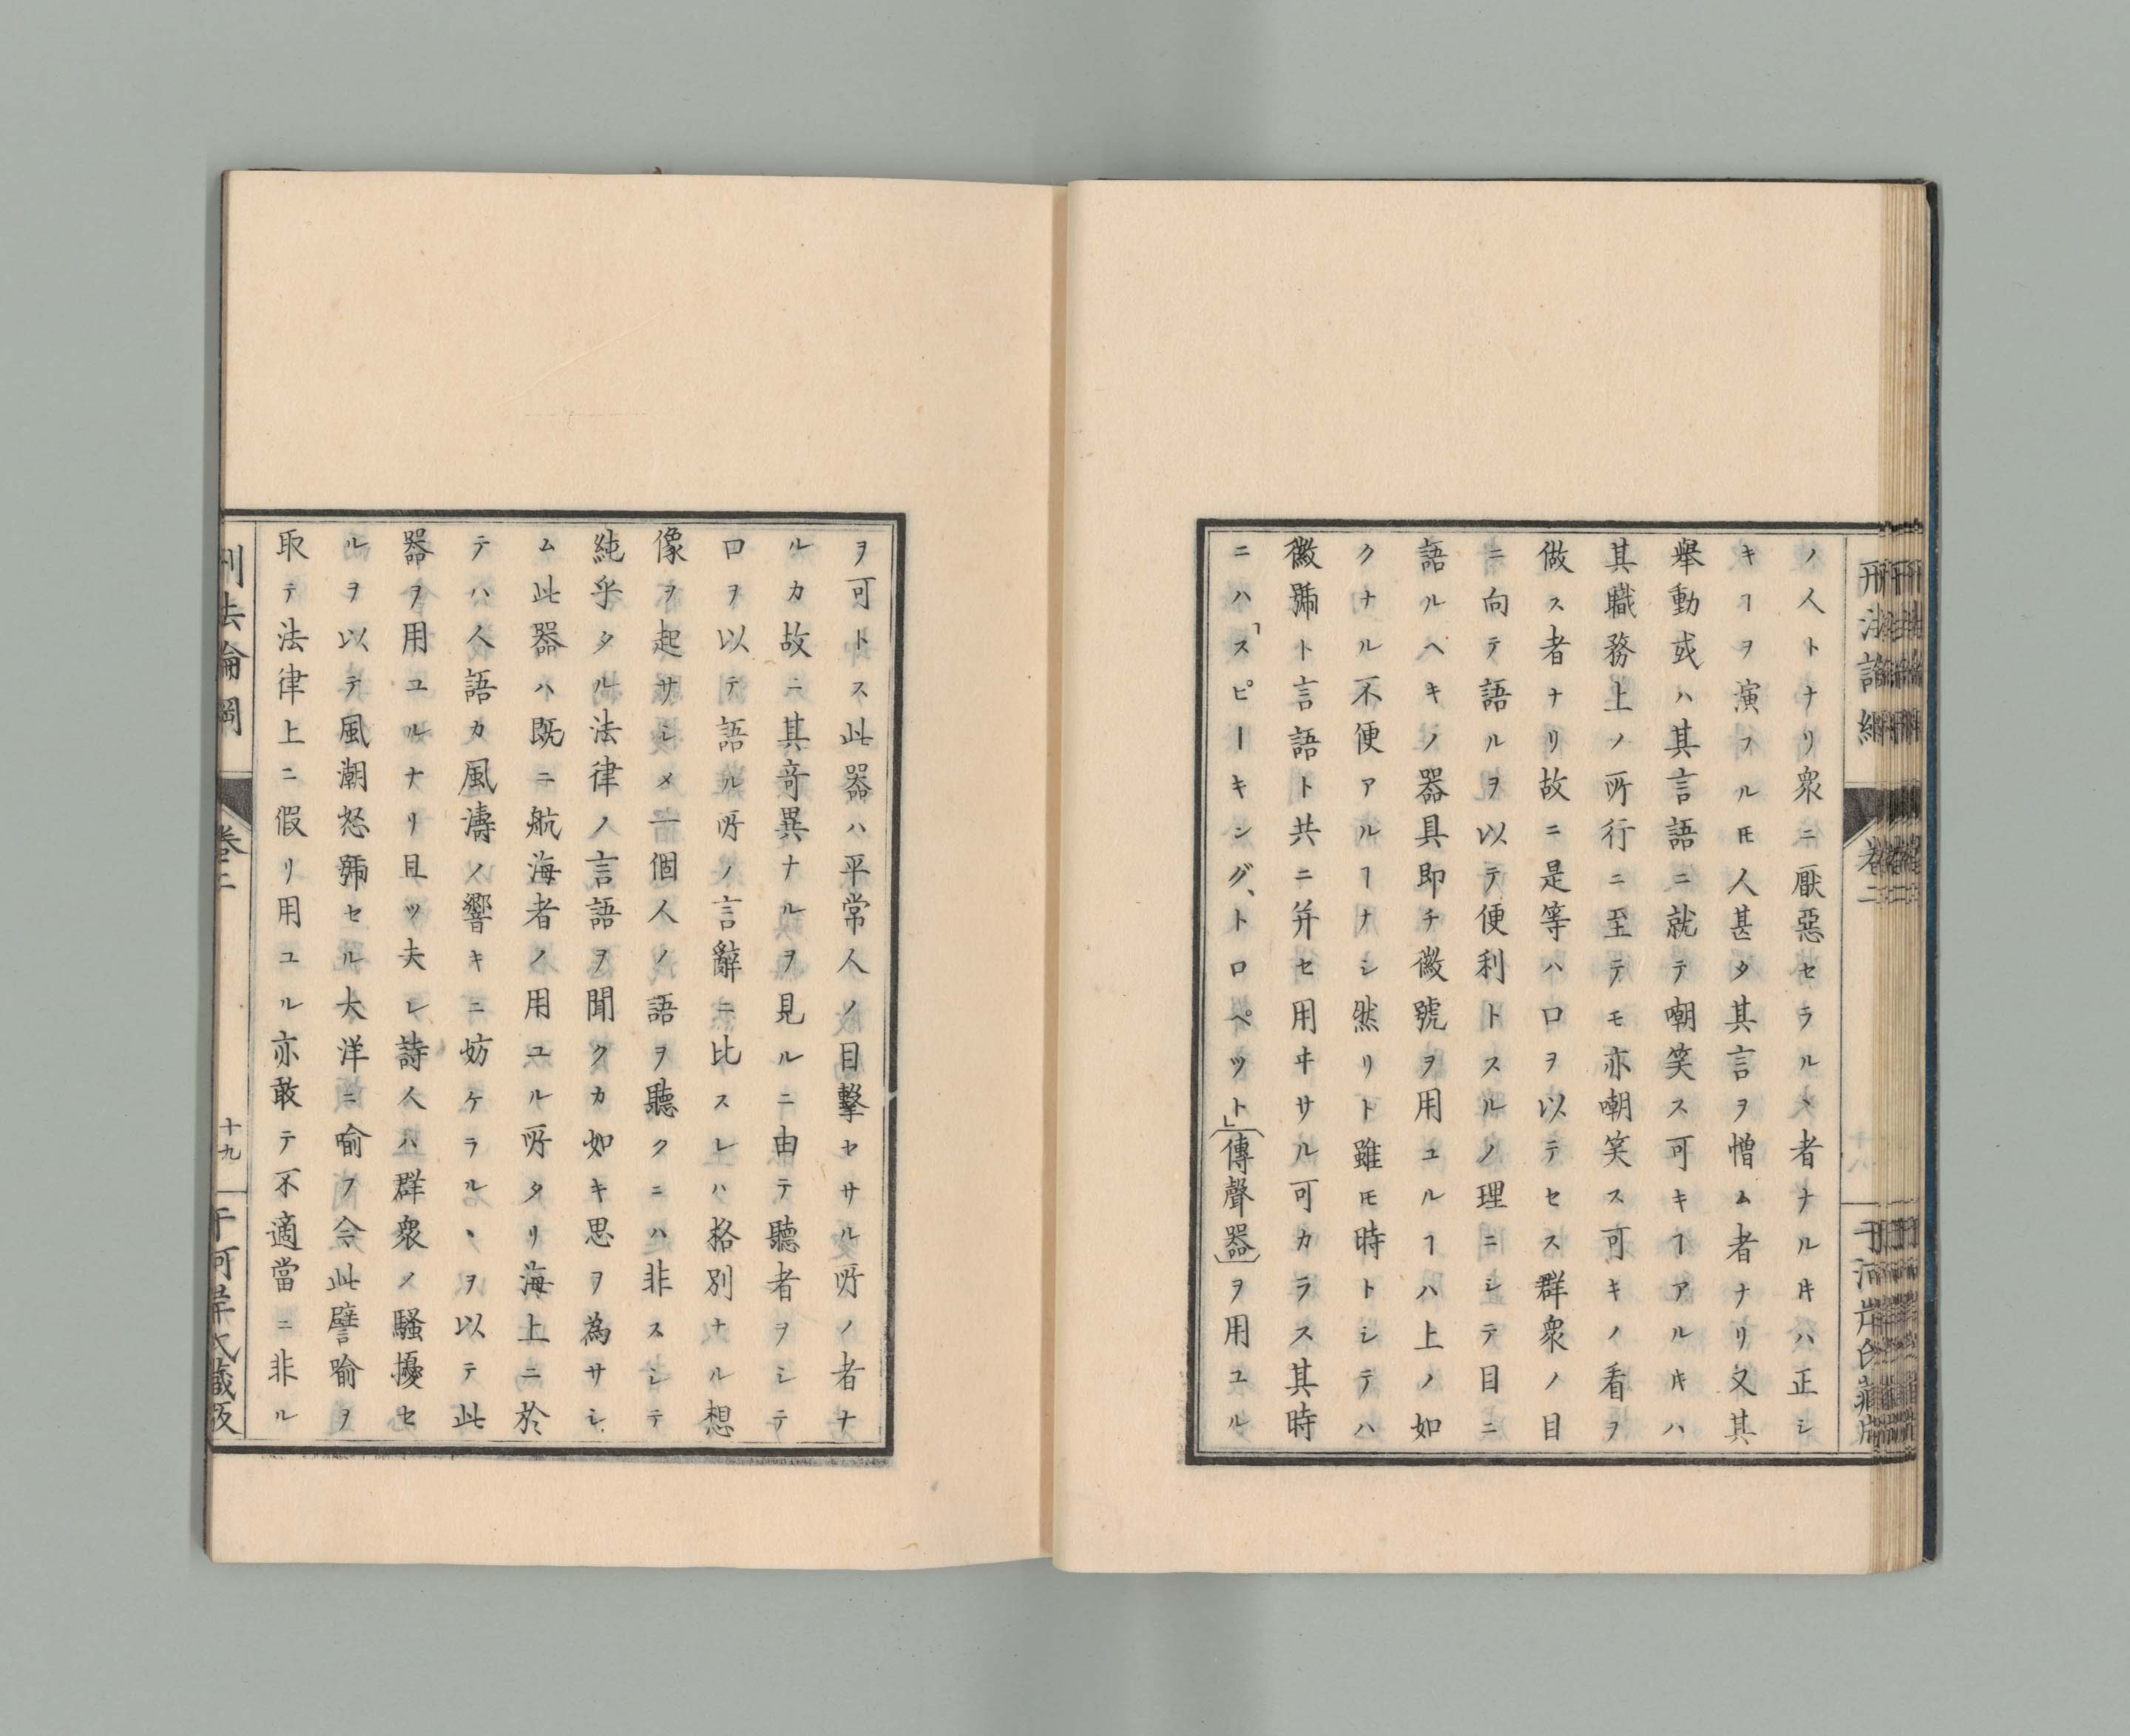 刑法論綱
卷二
于河岸氏藏版
ノ人トナリ衆ニ厭惡セラルヽ者ナルキハ正シ
キヿヲ演フルモ人甚タ其言ヲ憎ム者ナリ又其
擧動或ハ其言語ニ就テ嘲笑ス可キヿアルキハ
其職務上ノ所行ニ至テモ亦嘲笑ス可キノ看ヲ
做ス者ナリ故ニ是等ハ口ヲ以テセス群衆ノ目
ニ向テ語ルヲ以テ便利トスルノ理ニシテ目ニ
語ルヘキノ器具即チ徽號ヲ用ユルヿハ上ノ如
クナル不便アルヿナシ然リト雖モ時トシテハ
徽號ト言語ト共ニ并セ用ヰサル可カラス其時
ニハ「スピーキング、トロペツト」(傳聲器)ヲ用ユル
ヲ可トス此器ハ平常人ノ目擊セサル所ノ者ナ
ルカ故ニ其竒異ナルヲ見ルニ由テ聽者ヲシテ
口ヲ以テ語ル所ノ言辭ニ比スレハ格別ナル想
像ヲ起サシメ一個人ノ語ヲ聽クニハ非スシテ
純乎タル法律ノ言語ヲ聞クカ如キ思ヲ為サシ
ム此器ハ既ニ航海者ノ用ユル所タリ海上ニ於
テハ人語カ風濤ノ響キニ妨ケラルヽヲ以テ此
器ヲ用ユルナリ且ツ夫レ詩人ハ群衆ノ騷擾セ
ルヲ以テ風潮怒號セル大洋ニ喻フ今此譬喻ヲ
取テ法律上ニ假リ用ユル亦敢テ不適當ニ非ル
刑法論綱
卷二
十九
于河岸氏藏版